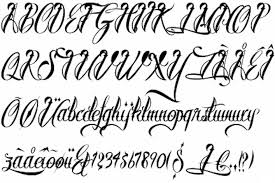 ABCDEFGHIJKLMNOP
QRSTUVWXYZÀÅÉÎ
ÕÜabcdefghijklmnopqrstuvwxy
zàåéîõü&1234567890($£€.,!?)